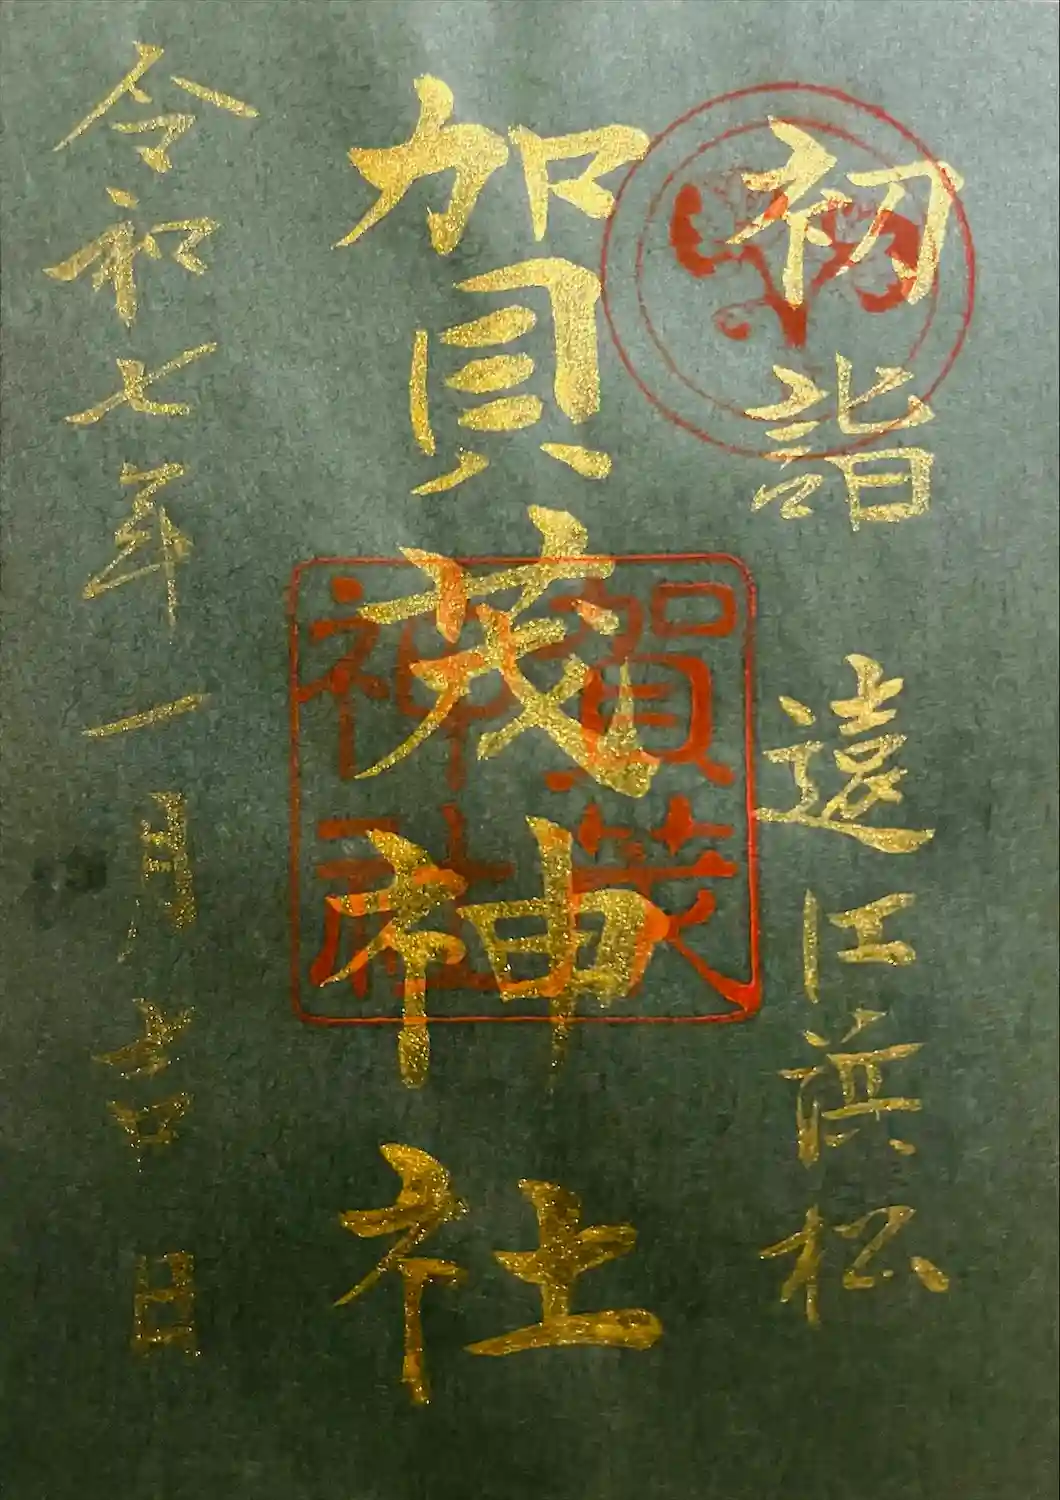 初詣
遠江浜松
賀茂神社
賀茂
神社
令和七年一月吉日